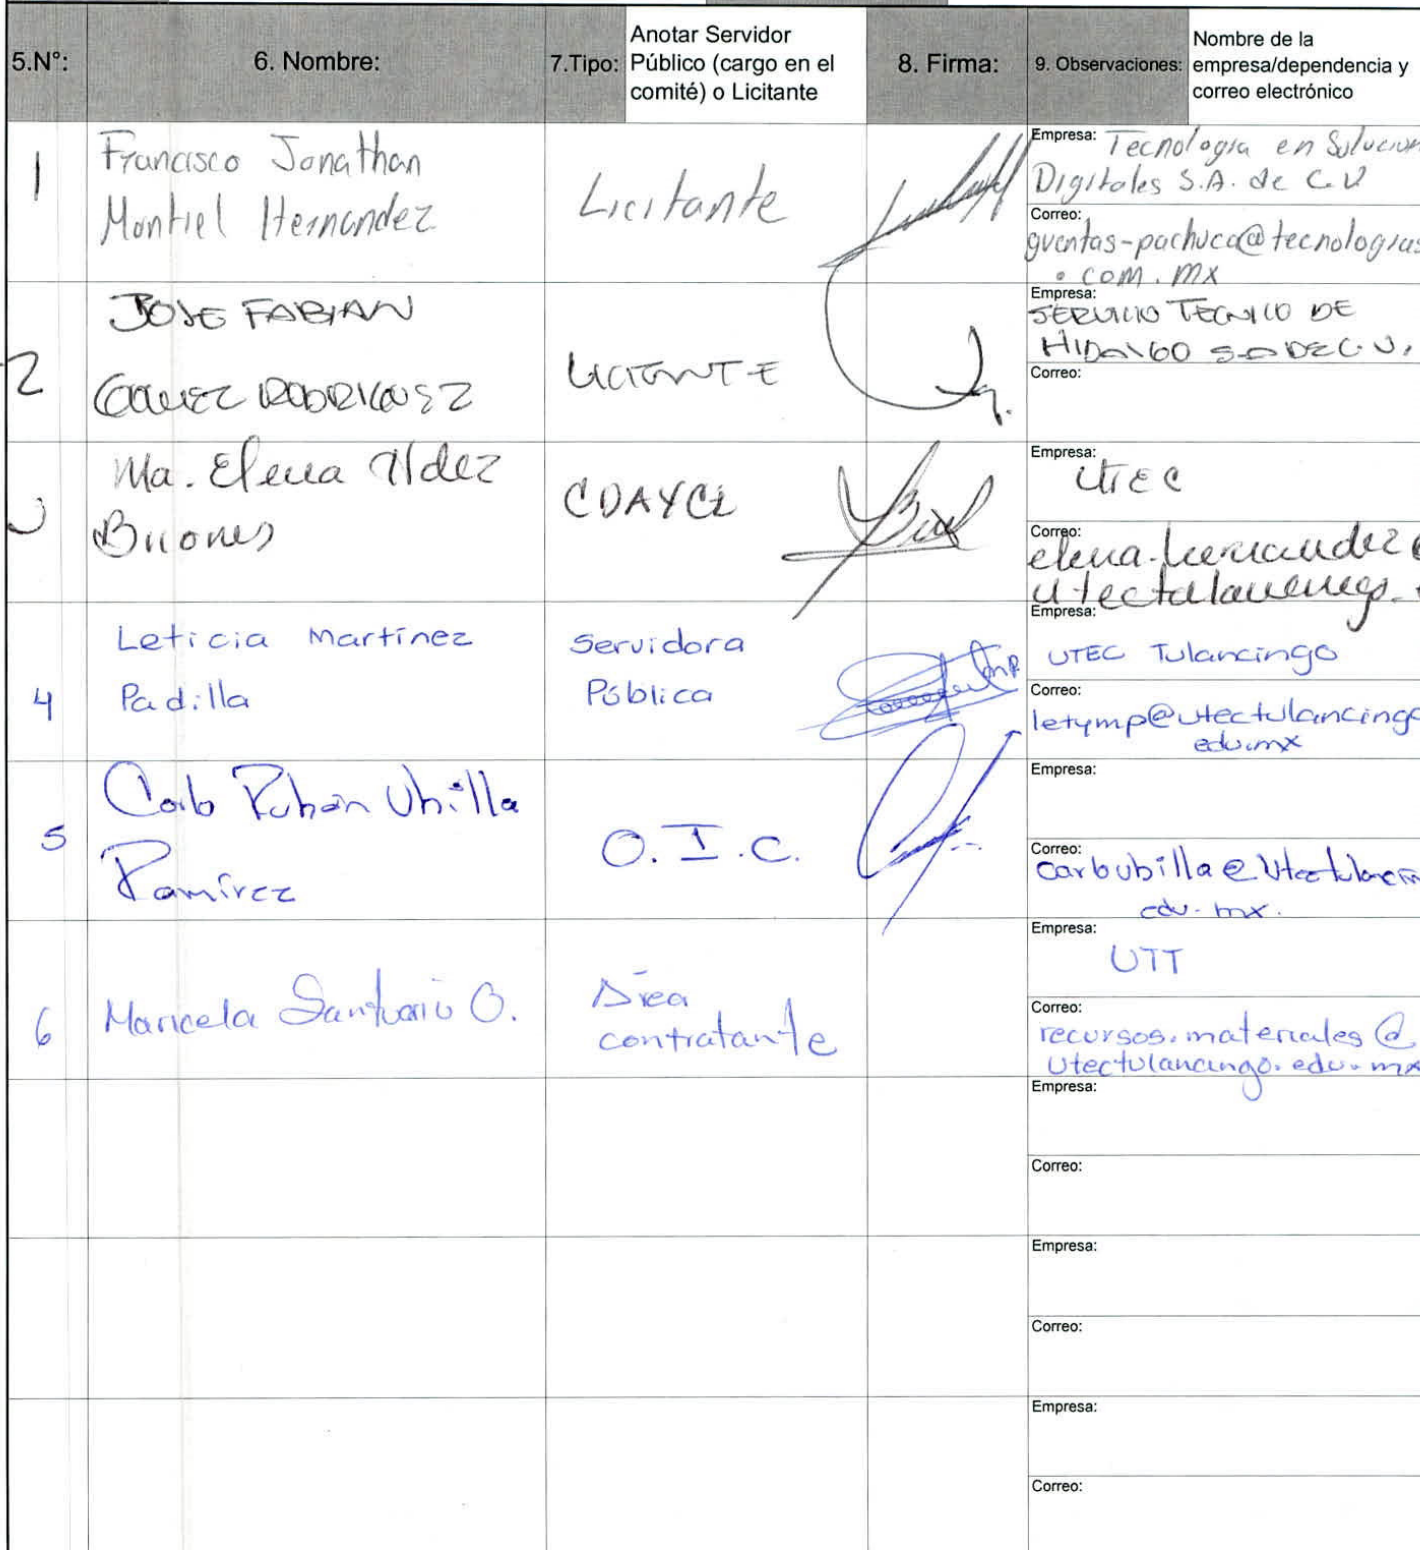 5.N°: 6. Nombre: 7.Tipo: Anotar Servidor Público (cargo en el comité) o Licitante 8. Firma: 9. Observaciones: Nombre de la empresa/dependencia y correo electrónico
1
Francisco Jonathan
Montiel Hernandez
Licitante
Empresa: Tecnologia en Solucion
Digitales S.A. de C.V
Correo:
gventas-pachuca@tecnologias
.com.mx
2
JOSE FABIAN
RODRIGUEZ
LICITANTE
Empresa:
SERVICIO TECNICO DE
HIDALGO S.A DE C.V.
Correo:
3
Ma. Elena Hdez
Briones
Empresa:
UTEC
Correo:
elena.hernandez@
Empresa:
4
Leticia Martínez
Padilla
Servidora
Pública
UTEC Tulancingo
Correo:
letymp@utectulancingo
edu.mx
5
Rubén Ubilla
Ramírez
O.I.C.
Empresa:
Correo:
edu.mx.
6
Maricela Santuario O.
Área
contratante
Empresa:
UTT
Correo:
recursos.materiales@
utectulancingo.edu.mx
Empresa:
Correo:
Empresa:
Correo:
Empresa:
Correo: